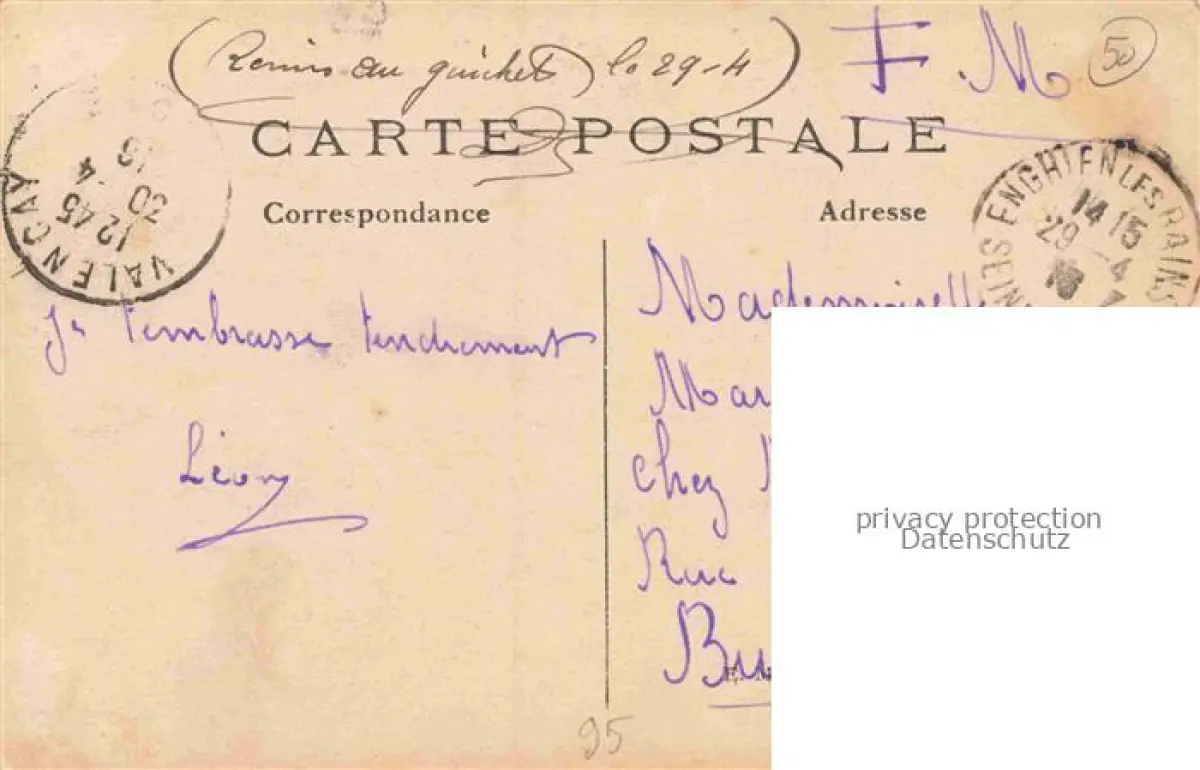 (Remis au guichet le 29-4)
F.M
50
CARTE POSTALE
Correspondance
Adresse
VALENCAY
12 45
30 -4
16
ENGHIEN LES BAINS
SEINE
14 15
29 -4
16
Je t'embrasse tendrement
Léon
Mademoiselle
Mar
Chez
Rue
Bu
privacy protection
Datenschutz
95